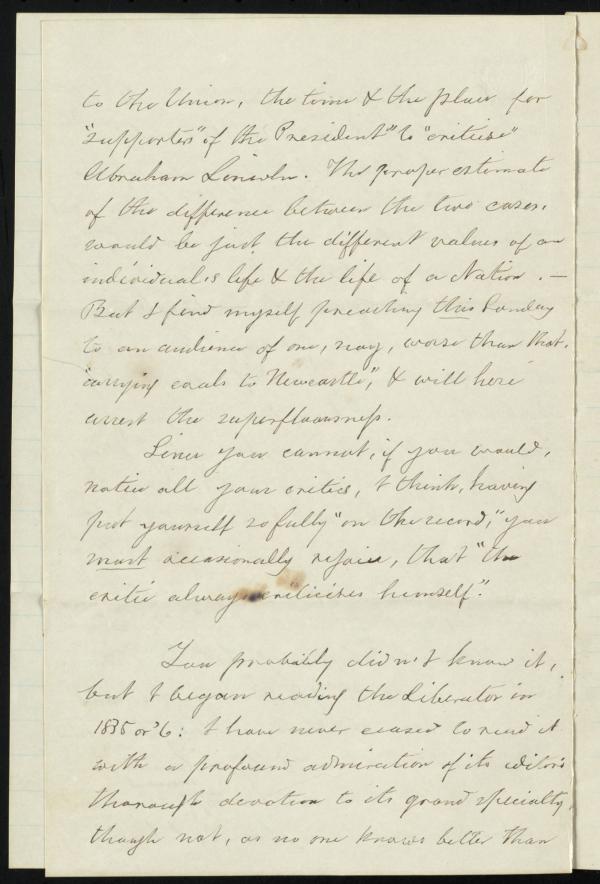 to the Union, the time & the place for
"supporters" of the President" to "criticise"
Abraham Lincoln. The proper estimate
of the difference between the two cases,
would be just the different values of an
individual's life & the life of a Nation. —
But I find myself preaching this Sunday
to an audience of one, nay, worse than that,
"carrying coals to Newcastle", & will here
arrest the superfluousness.
Since you cannot, if you would,
notice all your critics, I think, having
put yourself so fully "on the record," you
must occasionally rejoice, that "the
critic always criticises himself".
You probably didn't know it,
but I began reading the Liberator in
1835 or '6: I have never ceased to read it
with a profound admiration of its editor's
thorough devotion to its grand specialty,
though not, as no one knows better than